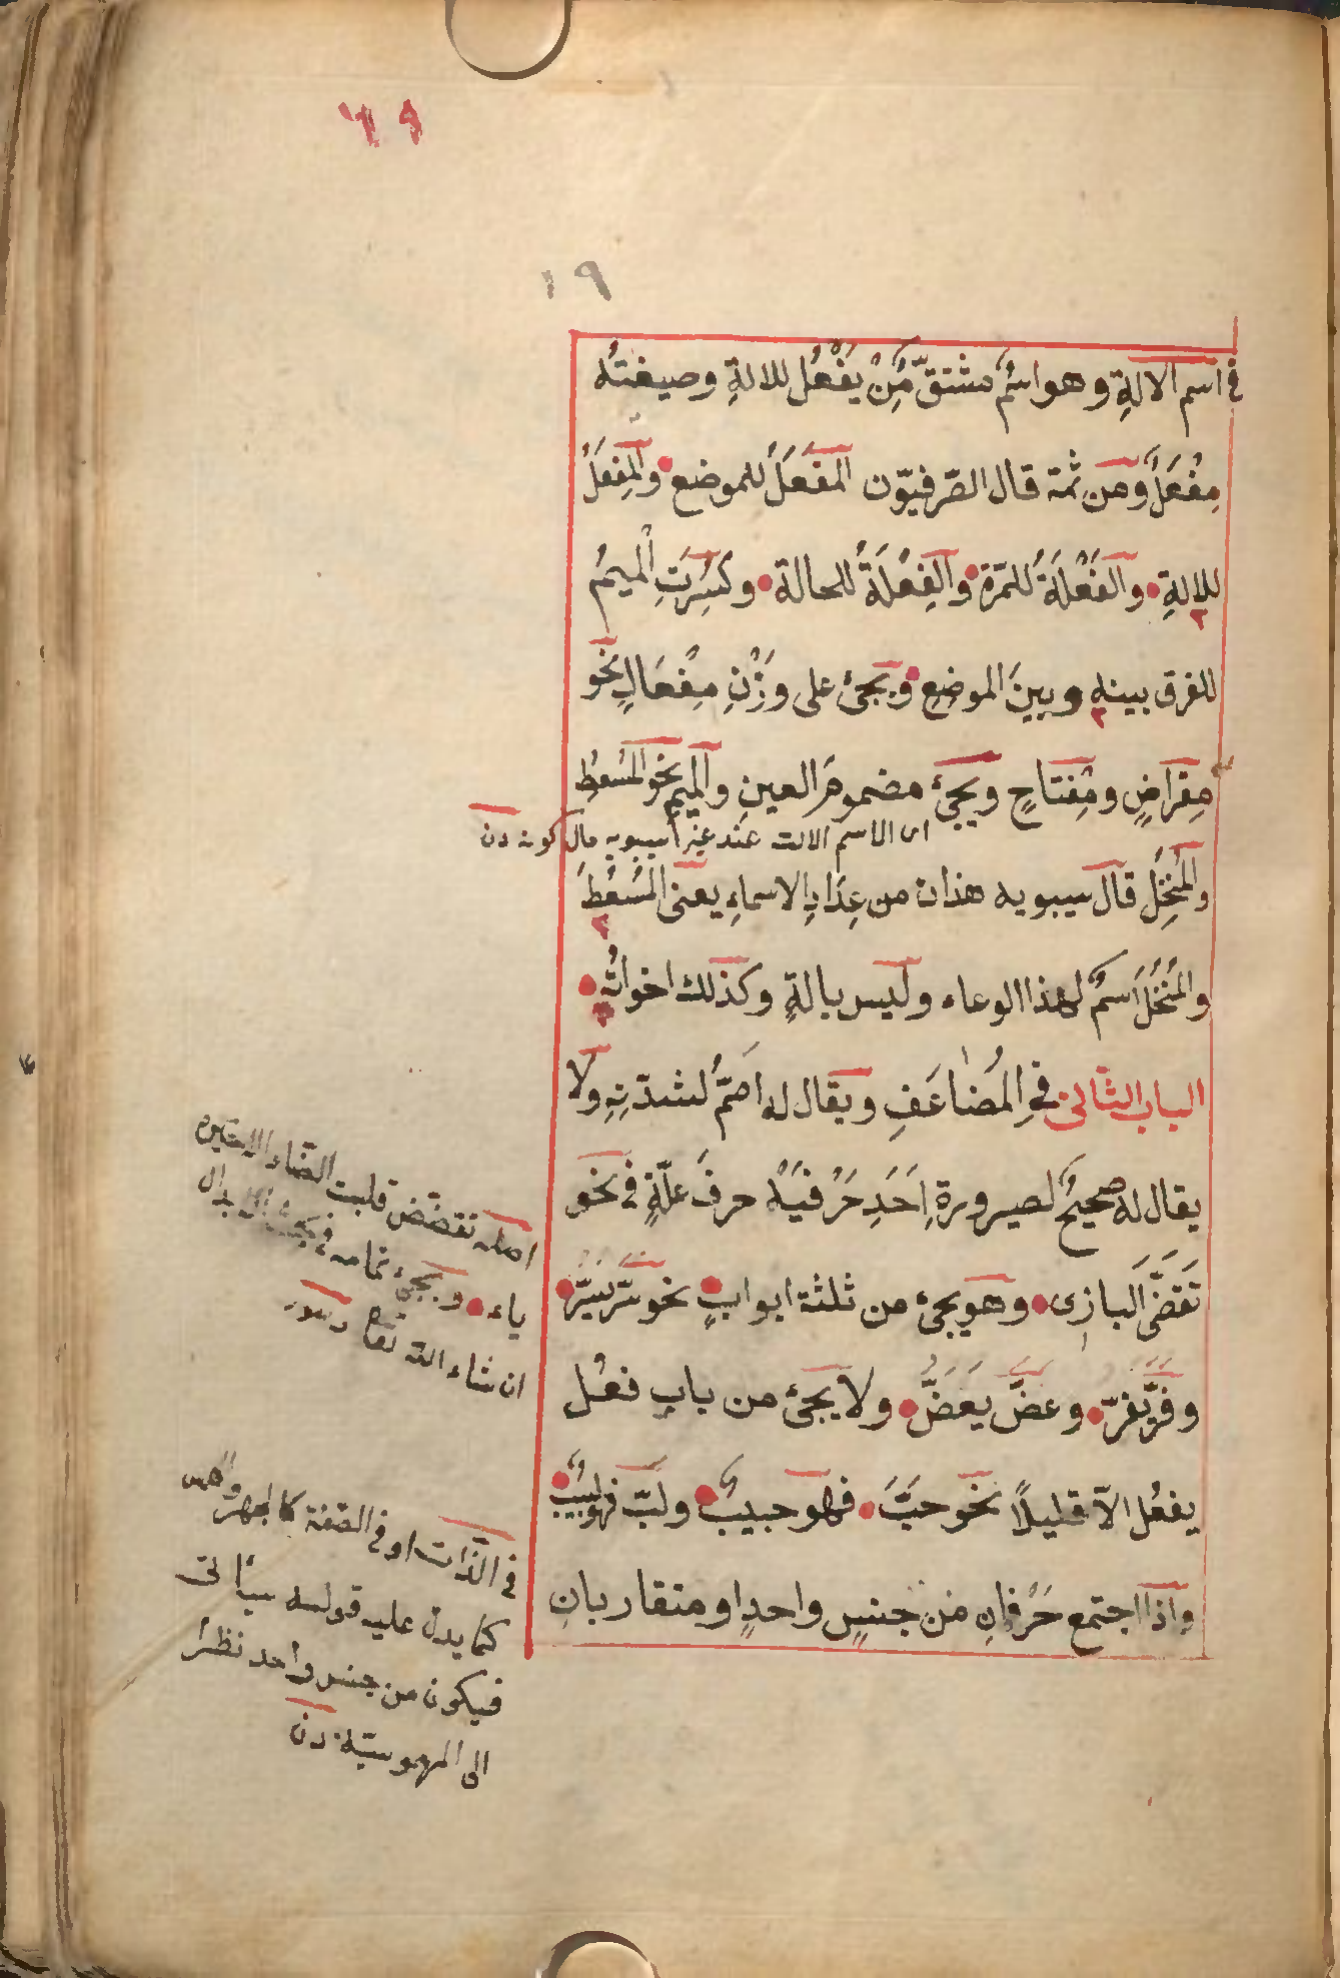 ٦٩
١٩
في اسم الالةِ وهو اسمٌ مشتقّ مِنْ يَفْعُل للالةِ وصيغتُه
مِفْعَلٌ ومن ثمة قال الصّرفيّون المَفعَلُ للموضع والمِفعَلُ
للالةِ والفَعْلَةُ للمّرة والفِعْلَةُ للحالة وكُسِرَتِ الميمُ
للفرق بينه وبينَ الموضِعِ ويجئ على وَزْنِ مِفْعَالٍ نحَو
مِقرَاضٍ ومِفتاحٍ ويجئُ مضمومَ العينِ والميمِ نحو المُسْعُطِ
اى الاسم الالت عند غير سيبويه
والمُنخُلِ قال سيبويه هذان من عِدَادِ الاسماءِ يعنى المُسْعُطُ
والمُنْخُلُ اسمٌ لهذا الوعاء وليس بالةٍ وكذلك اخواتُه
الباب الثانى في المُضاعَفِ ويقال له اَصَمُّ لشدّتِهِ ولا
يقال له صحيحٌ لصيرورةِ اَحَدِ حَرْفَيْهِ حرفَ علّةٍ في نحو
تَقَضَّى البازِى وهو يجئ من ثلثة ابوابٍ نحو سَرَّ يَسُرُّ
وفَرَّ يَفِرّ وعضَّ يَعَضُّ ولا يجئ من بابِ فعُل
يفعُل الاّ قليلاً نحو حبَّ فهو حبيبٌ ولبّ فهو لبيبٌ
واذا اجتمع حَرْفانِ من جنسٍ واحدٍ او متقاربانِ
اصله تقضّض قلبت الضاء الاخيرة
ياء ويجئ تمامه في بحث الابدال
ان شاء الله تعالى
في الذّات او في الصّفة كالجهر والهمس
كما يدلّ عليه قوله سيأتى
فيكون من جنس واحد نظراً
الى المهموسيّة